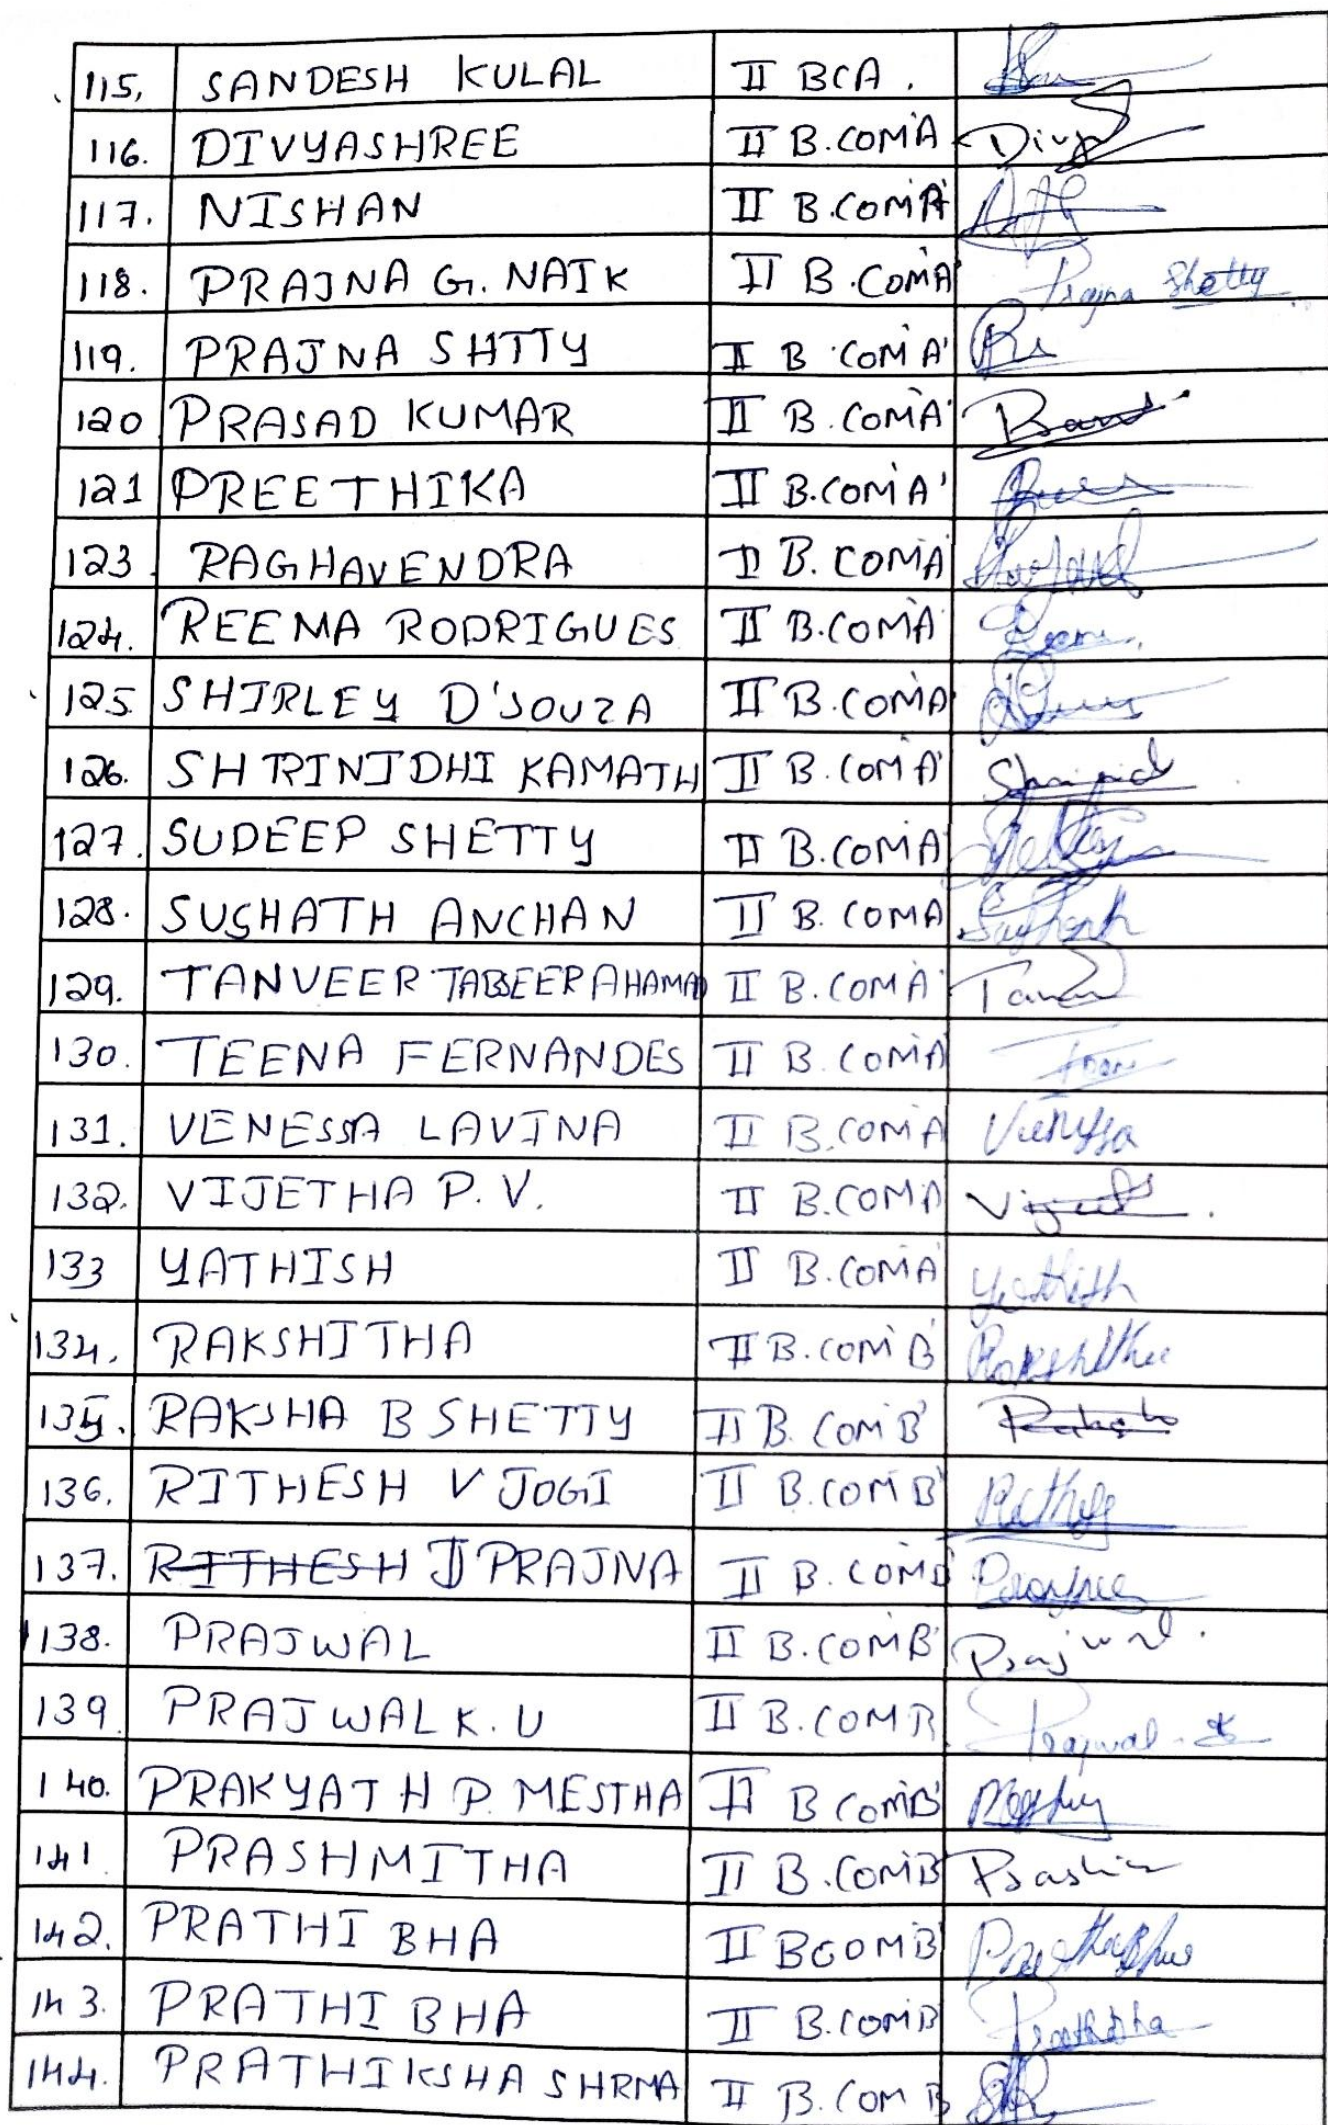 115. SANDESH KULAL II BCA.
116. DIVYASHREE II B.COM'A Divya
117. NISHAN II B.COM'A'
118. PRAJNA G. NAIK II B.COM'A' Prajna Shetty
119. PRAJNA SHTTY II B COM'A'
120 PRASAD KUMAR II B.COM'A'
121 PREETHIKA II B.COM'A'
123 RAGHAVENDRA II B.COM'A
124. REEMA RODRIGUES II B.COM'A'
125 SHIRLEY D'SOUZA II B.COM'A
126. SHRINIDHI KAMATH II B.COM'A'
127. SUDEEP SHETTY II B.COM'A Shetty
128. SUSHATH ANCHAN II B.COMA
129. TANVEER TABSEER AHAMAD II B.COM'A
130. TEENA FERNANDES II B.COM'A
131. VENESSA LAVINA II B.COM'A Venessa
132. VIJETHA P.V. II B.COM'A
133 YATHISH II B.COM'A' Yathish
134. RAKSHITHA II B.COM'B' Rakshitha
135. RAKSHA B SHETTY II B.COM'B' Raksha
136. RITHESH V JOGI II B.COM'B'
137. RITHESH J PRAJNA II B.COM'B
138. PRAJWAL II B.COM'B' Prajwal.
139 PRAJWAL K.U II B.COM'B Prajwal.
140. PRAKYATH P. MESTHA II B COM'B'
141 PRASHMITHA II B.COM'B
142. PRATHIBHA II BCOMB' Prathibha
143. PRATHIBHA II B.COM'B Prathibha
144. PRATHIKSHA SHRMA II B.COM B